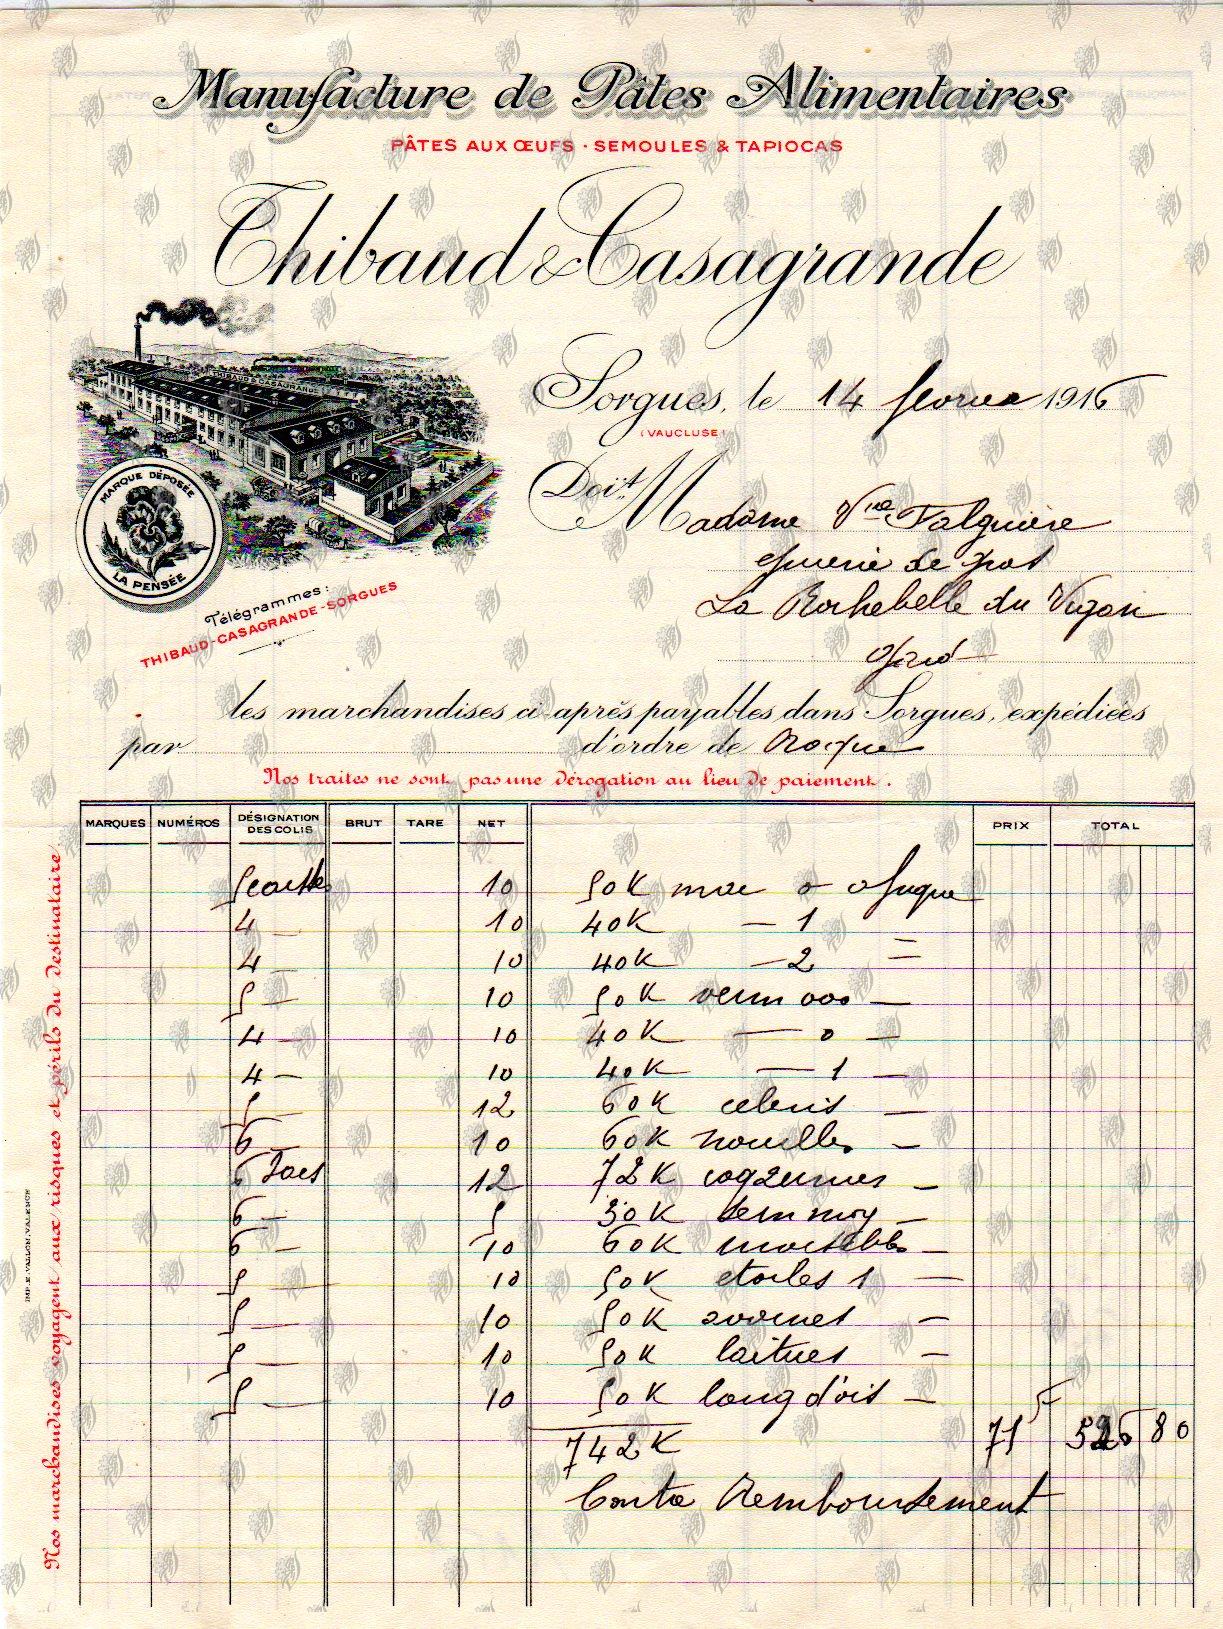 Manufacture de Pâtes Alimentaires
PÂTES AUX ŒUFS · SEMOULES & TAPIOCAS
Thibaud & Casagrande
THIBAUD & CASAGRANDE
Sorgues, le 14 février 1916
(VAUCLUSE)
MARQUE DÉPOSÉE
LA PENSÉE
Télégrammes:
THIBAUD-CASAGRANDE-SORGUES
Doit Madame Vve Falguière
epicerie Le
La Rochebelle du Vigan
Gard
les marchandises ci-après payables dans Sorgues, expédiées
par d'ordre de Roque
Nos traites ne sont pas une dérogation au lieu de paiement.
MARQUES NUMÉROS DÉSIGNATION DES COLIS BRUT TARE NET PRIX TOTAL
5 10 50 K mac 0
4 — 10 40 K — 1 =
4 — 10 40 K — 2 =
5 — 10 50 K verm 000 —
4 — 10 40 K — 0 —
4 — 10 40 K — 1 —
5 — 12 60 K celeris —
6 — 10 60 K nouilles —
6 Sacs 12 72 K —
6 — 5 30 K Sem moy —
6 — 10 60 K —
5 — 10 50 K etoiles 1 —
5 — 10 50 K —
5 — 10 50 K laitues —
5 — 10 50 K long d'ois —
742 K 71 F 526 80
Contre Remboursement
Nos marchandises voyagent aux risques et périls du destinataire
IMP. E. VALLON, VALENCE